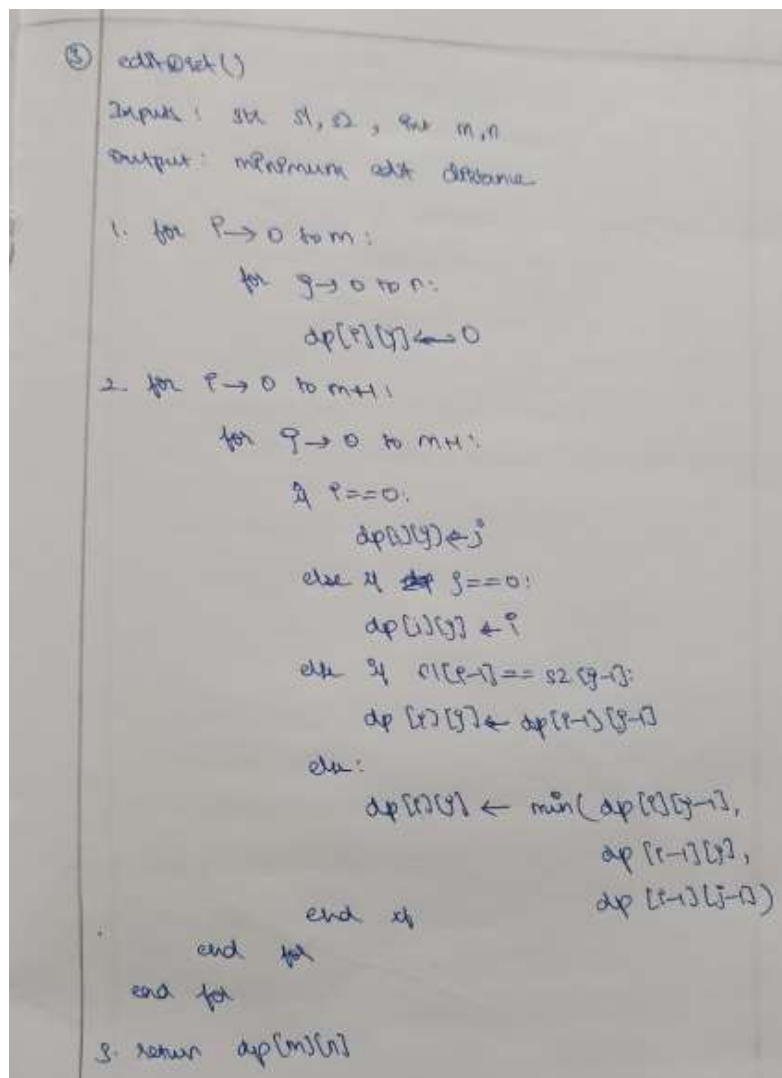 ③ editDist()
Inputs: str s1, s2, int m,n
Output: minimum edit distance
1. for i→0 to m:
for j→0 to n:
dp[i][j]←0
2. for i→0 to m+1:
for j→0 to m+1:
if i==0:
dp[i][j]←j
else if j==0:
dp[i][j]←i
else if s1[i-1]==s2[j-1]:
dp[i][j]←dp[i-1][j-1]
else:
dp[i][j]←min(dp[i][j-1],
dp[i-1][j],
dp[i-1][j-1])
end if
end for
end for
3. return dp[m][n]